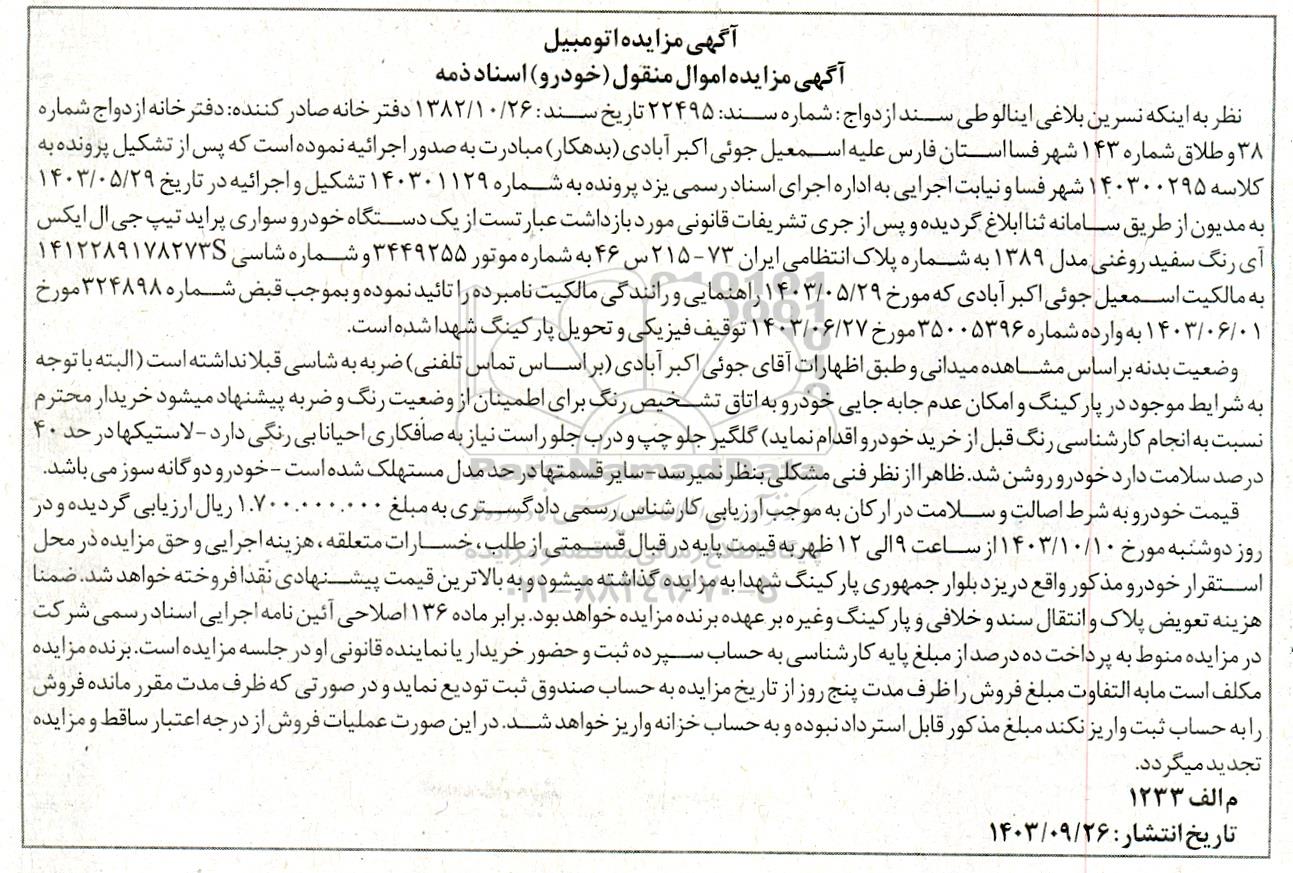 آگهی مزایده اتومبیل
آگهی مزایده اموال منقول (خودرو) اسناد ذمه
نظر به اینکه نسرین بلاغی اینالو طی سند ازدواج: شماره سند: ۲۲۴۹۵ تاریخ سند: ۱۳۸۲/۱۰/۲۶ دفتر خانه صادر کننده: دفترخانه ازدواج شماره
۳۸ و طلاق شماره ۱۴۳ شهر فسا استان فارس علیه اسمعیل جوئی اکبر آبادی (بدهکار) مبادرت به صدور اجرائیه نموده است که پس از تشکیل پرونده به
کلاسه ۱۴۰۳۰۰۲۹۵ شهر فسا و نیابت اجرایی به اداره اجرای اسناد رسمی یزد پرونده به شماره ۱۴۰۳۰۱۱۲۹ تشکیل و اجرائیه در تاریخ ۱۴۰۳/۰۵/۲۹
به مدیون از طریق سامانه ثنا ابلاغ گردیده و پس از جری تشریفات قانونی مورد بازداشت عبارتست از یک دستگاه خودرو سواری پراید تیپ جی ال ایکس
آی رنگ سفید روغنی مدل ۱۳۸۹ به شماره پلاک انتظامی ایران ۷۳-۲۱۵ س ۴۶ به شماره موتور ۳۴۴۹۲۵۵ و شماره شاسی S۱۴۱۲۲۸۹۱۷۸۲۷۳
به مالکیت اسمعیل جوئی اکبر آبادی که مورخ ۱۴۰۳/۰۵/۲۹ راهنمایی و رانندگی مالکیت نامبرده را تائید نموده و بموجب قبض شماره ۳۲۴۸۹۸ مورخ
۱۴۰۳/۰۶/۰۱ به وارده شماره ۳۵۰۰۵۳۹۶ مورخ ۱۴۰۳/۰۶/۲۷ توقیف فیزیکی و تحویل پارکینگ شهدا شده است.
وضعیت بدنه بر اساس مشاهده میدانی و طبق اظهارات آقای جوئی اکبر آبادی (بر اساس تماس تلفنی) ضربه به شاسی قبلا نداشته است (البته با توجه
به شرایط موجود در پارکینگ و امکان عدم جابه جایی خودرو به اتاق تشخیص رنگ برای اطمینان از وضعیت رنگ و ضربه پیشنهاد میشود خریدار محترم
نسبت به انجام کارشناسی رنگ قبل از خرید خودرو اقدام نماید) گلگیر جلو چپ و درب جلو راست نیاز به صافکاری احیانا بی رنگی دارد -لاستیکها در حد ۴۰
درصد سلامت دارد خودرو روشن شد. ظاهرا از نظر فنی مشکلی بنظر نمیرسد -سایر قسمتها در حد مدل مستهلک شده است -خودرو دوگانه سوز می باشد.
قیمت خودرو به شرط اصالت و سلامت در ارکان به موجب ارزیابی کارشناس رسمی دادگستری به مبلغ ۱.۷۰۰.۰۰۰.۰۰۰ ریال ارزیابی گردیده و در
روز دوشنبه مورخ ۱۴۰۳/۱۰/۱۰ از ساعت ۹ الی ۱۲ ظهر به قیمت پایه در قبال قسمتی از طلب، خسارات متعلقه، هزینه اجرایی و حق مزایده در محل
استقرار خودرو مذکور واقع در یزد بلوار جمهوری پارکینگ شهدا به مزایده گذاشته میشود و به بالاترین قیمت پیشنهادی نقدا فروخته خواهد شد. ضمنا
هزینه تعویض پلاک و انتقال سند و خلافی و پارکینگ وغیره بر عهده برنده مزایده خواهد بود. برابر ماده ۱۳۶ اصلاحی آئین نامه اجرایی اسناد رسمی شرکت
در مزایده منوط به پرداخت ده درصد از مبلغ پایه کارشناسی به حساب سپرده ثبت و حضور خریدار یا نماینده قانونی او در جلسه مزایده است. برنده مزایده
مکلف است مابه التفاوت مبلغ فروش را ظرف مدت پنج روز از تاریخ مزایده به حساب صندوق ثبت تودیع نماید و در صورتی که ظرف مدت مقرر مانده فروش
را به حساب ثبت واریز نکند مبلغ مذکور قابل استرداد نبوده و به حساب خزانه واریز خواهد شد. در این صورت عملیات فروش از درجه اعتبار ساقط و مزایده
تجدید میگردد.
م الف ۱۲۳۳
تاریخ انتشار: ۱۴۰۳/۰۹/۲۶